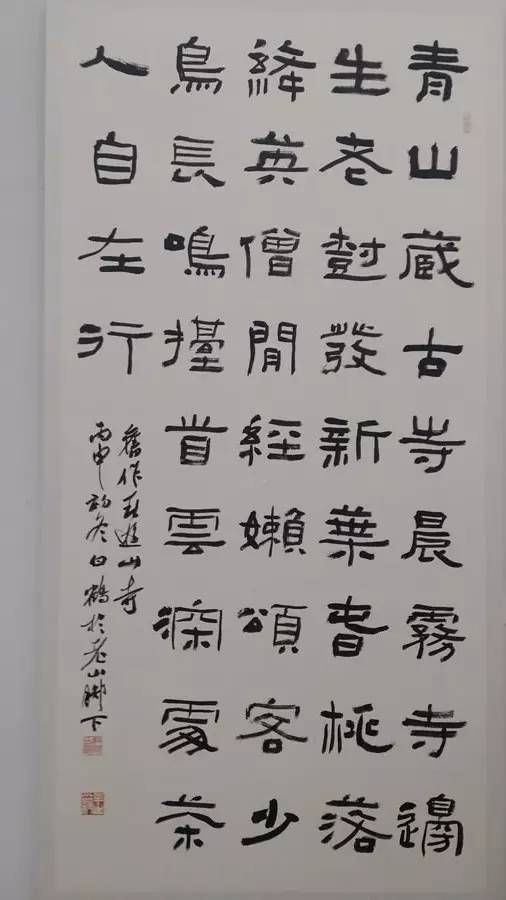 青山蔵古寺晨霧寺邊
生老尌發新葉春桃落
絳英僧閒經嬾頌客少
鳥長鳴擡首雲深處茶
人自在行
舊作春遊山寺
丙申初冬白鶴於老山腳下